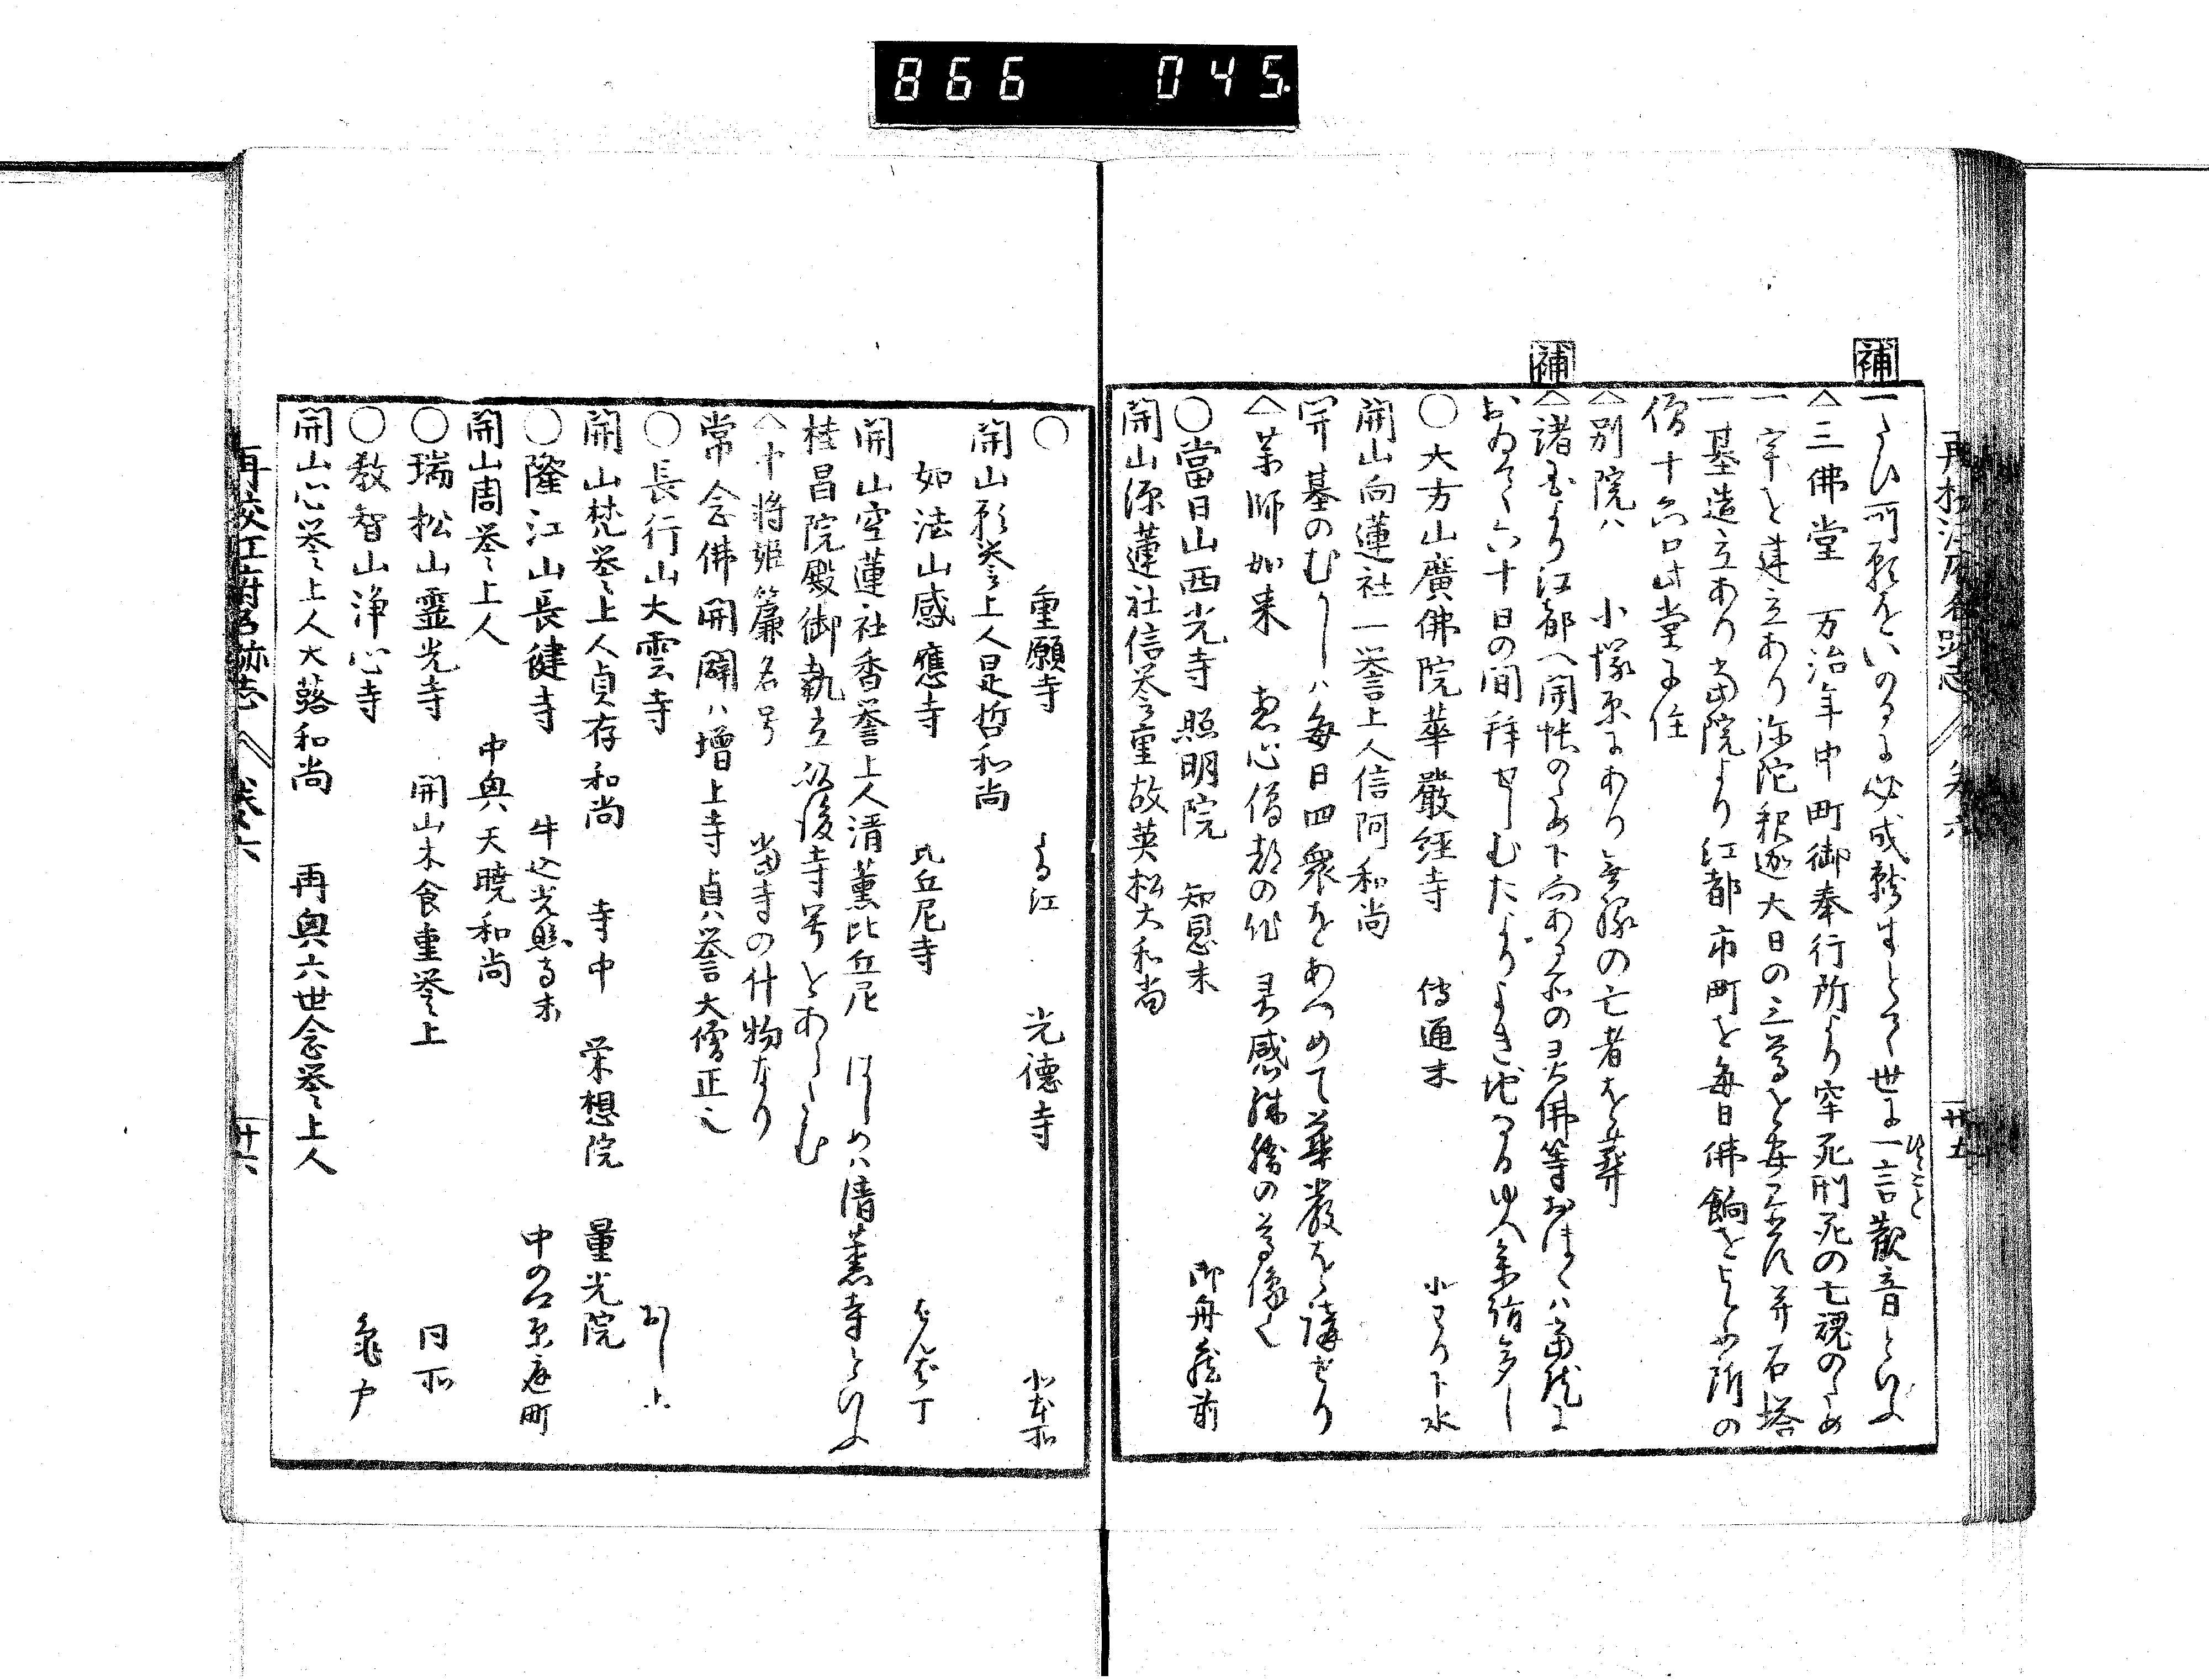 866 045.
再校江府名跡志 巻六 廿五
補
一たひ所願をいのるに必成就すとて世に一言観音といふ
ひとこと
△三佛堂 万治年中町御奉行所より牢死刑死の亡魂のため
一宇を建立あり弥陀釈迦大日の三尊を安置し并石塔
一基造立あり當院より江都市町を毎日佛餉をとる此所の
僧十六口此堂に住
△別院ハ 小塚原にあり無縁の亡者を葬
補
△諸国より江都へ開帳のため下向ある所の灵佛等おほくハ當院に
おゐて六十日の間拝せしむたよりよき地なるゆへ参詣多し
○大方山廣佛院華嚴經寺 傳通末 小石川下水
開山向蓮社一誉上人信阿和尚
開基のむかしハ毎日四衆をあつめて華嚴を講せり
△薬師如来 恵心僧都の作 灵感殊勝の尊像也
○當日山西光寺照明院 知恩末 御舟蔵前
開山源蓮社信誉重故英松大和尚
○ 重願寺 光徳寺 北本所
開山彩誉上人是哲和尚
如法山感應寺 比丘尼寺
開山空蓮社香誉上人清薫比丘尼 はしめハ清薫寺といふ
桂昌院殿御執立以後寺号をあらたむ
△中将姫簾名号 當寺の什物なり
常念佛開闢ハ増上寺貞誉大僧正也
○長行山大雲寺
開山梵誉上人貞存和尚 寺中 栄想院 量光院
○隆江山長健寺 牛込光照寺末 中の口原庭町
開山周誉上人 中興天暁和尚
○瑞松山霊光寺 開山木食重誉上 同所
○教智山浄心寺 亀戸
開山心誉上人大蕗和尚 再興六世念誉上人
再校江府名跡志 巻六 廿六